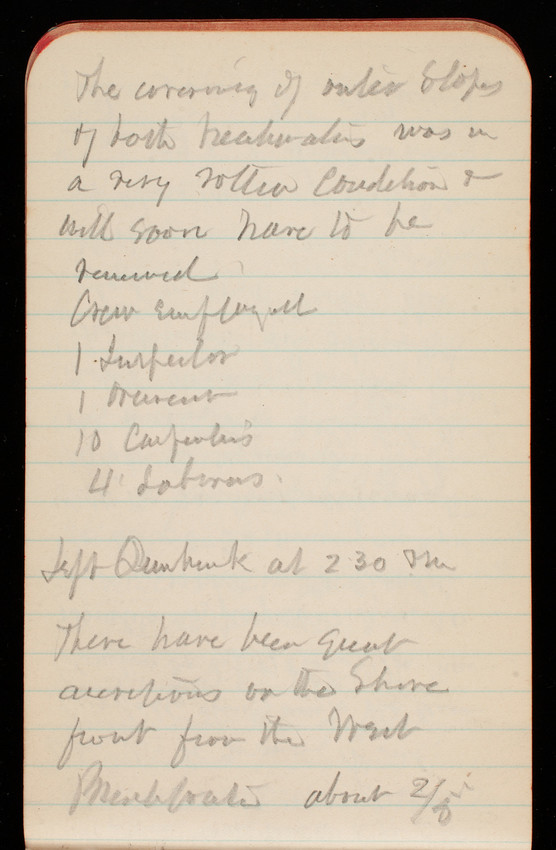 The covering of outer slopes
of both breakwaters was in
a very rotten condition &
will soon have to be
renewed
Crew employed
1 Inspector
1
10 Carpenters
4 Laborers.
Left Dunkirk at 2 30 PM
There have been great
accretions on the Shore
front from the West
Breakwater about 2/3